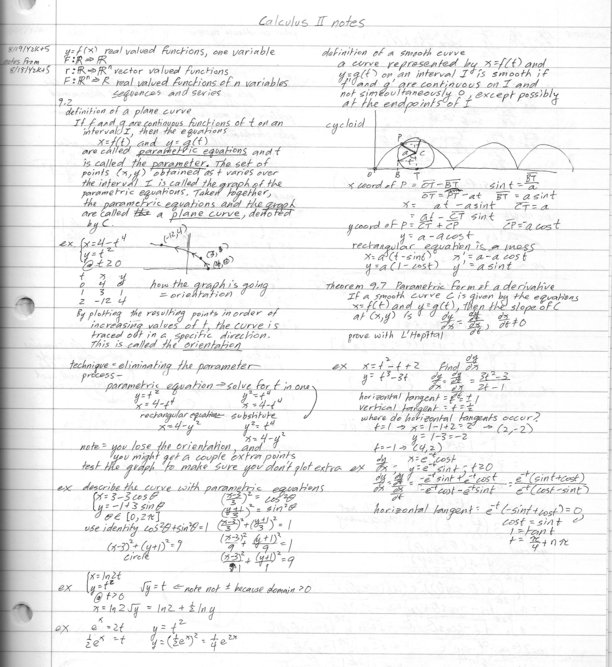 Calculus II notes
8/19/Y2K+5
notes from
8/18/Y2K+5
y=f(x) real valued functions, one variable
F:ℝ⇒ℝ
r:ℝ⇒ℝⁿ vector valued functions
F:ℝⁿ⇒ℝ real valued functions of n variables
sequences and series
9.2
definition of a plane curve
If f and g are continuous functions of t on an
interval I, then the equations
x=f(t) and y=g(t)
are called parametric equations and t
is called the parameter. The set of
points (x,y) obtained as t varies over
the interval I is called the graph of the
parametric equations. Taken together,
the parametric equations and the graph
are called the a plane curve, denoted
by C.
ex {x=4-t⁴
{y=t²
@t≥0
t x y
0 4 0
1 3 1
2 -12 4
(-12,4)
how the graph is going
= orientation
By plotting the resulting points in order of
increasing values of t, the curve is
traced out in a specific direction.
This is called the orientation
technique = eliminating the parameter
process-
parametric equation→solve for t in one
y=t² y²=t⁴
x=4-t⁴ x=4-t⁴
rectangular equation← substitute
x=4-y² y²=t⁴
x=4-y²
note= you lose the orientation, and
you might get a couple extra points
test the graph to make sure you don't plot extra
ex describe the curve with parametric equations
{x=3-3cosθ
{y=-1+3sinθ
θ∈[0,2π]
(x-3/3)²=cos²θ
(y+1/3)²=sin²θ
use identity cos²θ+sin²θ=1 (x-3/3)²+(y+1/3)²=1
(x-3)²/9+(y+1)²/9=1
(x-3)²+(y+1)²=9
circle
ex {x=ln2t
{y=t²
@t>0
√y=t ← note not ± because domain>0
x=ln2√y = ln2+½lny
ex eˣ=2t y=t²
½eˣ=t y=(½eˣ)²=¼e²ˣ
definition of a smooth curve
a curve represented by x=f(t) and
y=g(t) on an interval I is smooth if
f' and g' are continuous on I and
not simoultaneously 0, except possibly
at the endpoints of I
cycloid
P
C
O B T
x coord of P = OT-BT sint=a
OT-PT-at BT=asint
x= at-asint CT=a
=at-CT sint
y coord of P=CT+CP CP=acost
y=a-acost
rectangular equation is a mess
x=a(t-sint) x'=a-acost
y=a(1-cost) y'=asint
Theorem 9.7 Parametric Form of a derivative
If a smooth curve C is given by the equations
x=f(t) and y=g(t), then the slope of C
at (x,y) is dy/dx = dy/dt / dx/dt, dx/dt≠0
prove with L'Hopital
ex x=t²-t+2 Find dy/dx
y=t³-3t dy/dx=dy/dt / dx/dt=3t²-3/2t-1
horizontal tangent=t=±1
vertical tangent=t=½
where do horizontal tangents occur?
t=1→x=1-1+2=2 →(2,-2)
y=1-3=-2
t=-1→(4,2)
ex x=e⁻ᵗcost
y=e⁻ᵗsint, t≥0
dy/dx = dy/dt / dx/dt = -e⁻ᵗsint+e⁻ᵗcost / -e⁻ᵗcost-e⁻ᵗsint
horizontal tangent: e⁻ᵗ(-sint+cost)=0
cost=sint
1=tant
t=π/4+nπ